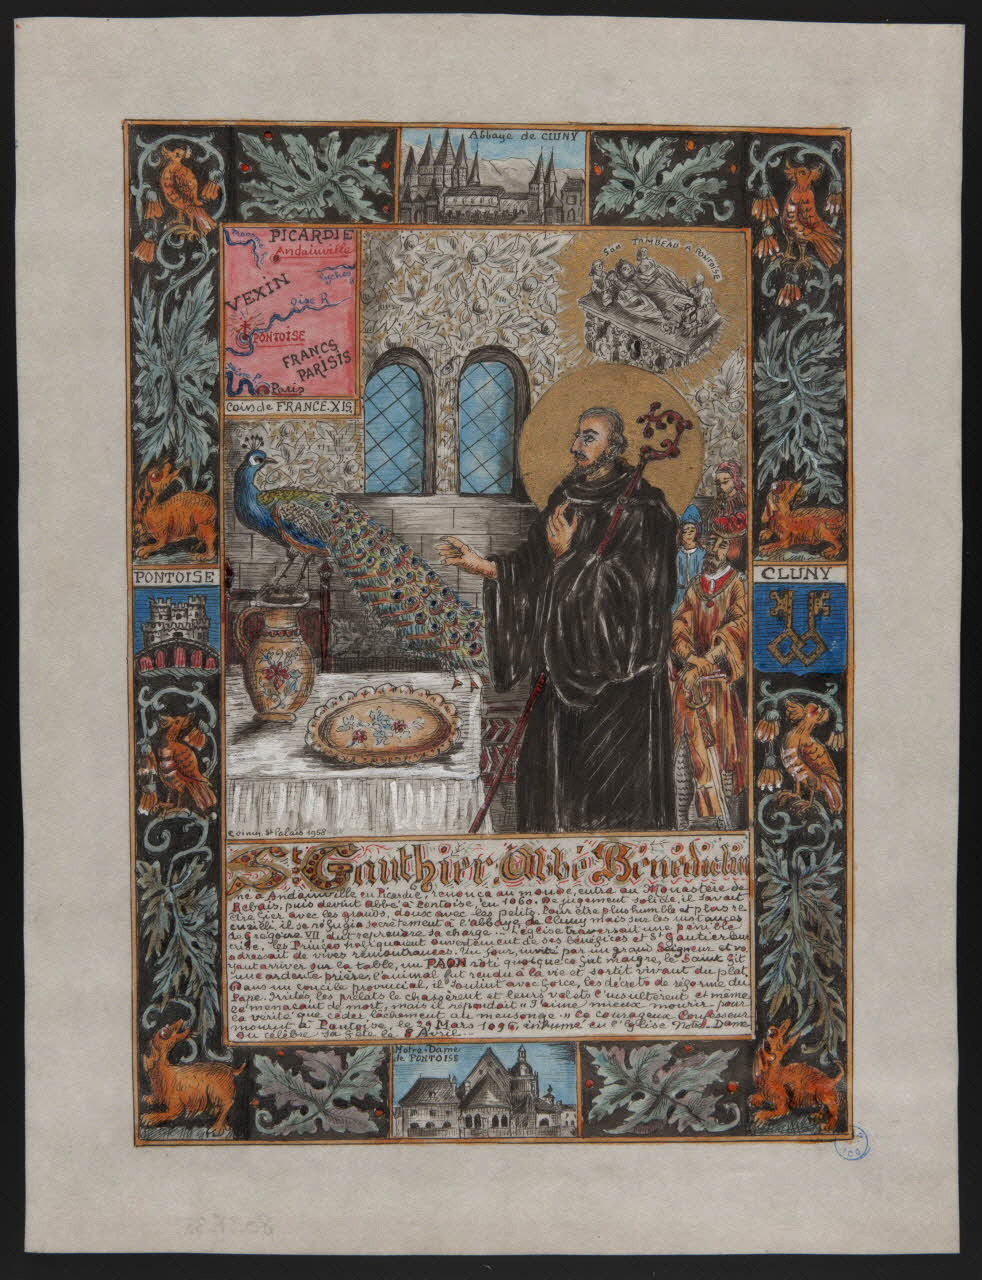 Abbaye de CLUNY
PICARDIE
Andainville
VEXIN
Oise R
PONTOISE
FRANCS
PARISIS
Paris
Coin de FRANCE. XI S.
SON TOMBEAU A PONTOISE
PONTOISE
CLUNY
St Palais 1958
St Gauthier. Abbé Bénédictin
né à Andainville en Picardie, renonça au monde, entra au Monastère de
Rebais, puis devint Abbé à Pontoise, en 1060. De jugement solide, il savait
être fier avec les grands, doux avec les petits. Pour être plus humble et plus re
cueilli, il se réfugia secrètement à l'abbaye de Cluny mais sur les instances
de Grégoire VII, dut reprendre sa charge... L'église traversait une pénible
crise, les Princes trafiquaient ouvertement de ses bénéfices et St Gautier leur
adressait de vives remontrances. Un jour, invité par un grand Seigneur et vo
yant arriver sur la table, un PAON rôti quoique ce fut maigre, le Saint fit
une ardente prière, l'animal fut rendu à la vie et sortit vivant du plat
Dans un concile provincial, il soutint avec force, les décrets de réforme du
Pape. Irrités, les prélats le chassèrent et leurs valets l'insultèrent et même
le menaçant de mort, mais il répondait "J'aime mieux mourir pour
la vérité que céder lâchement au mensonge." Ce courageux Confesseur
mourut à Pontoise, le 29 Mars 1096, inhumé en l'Eglise Notre-Dame
On célèbre sa fête le 8 Avril...
Notre-Dame
de PONTOISE